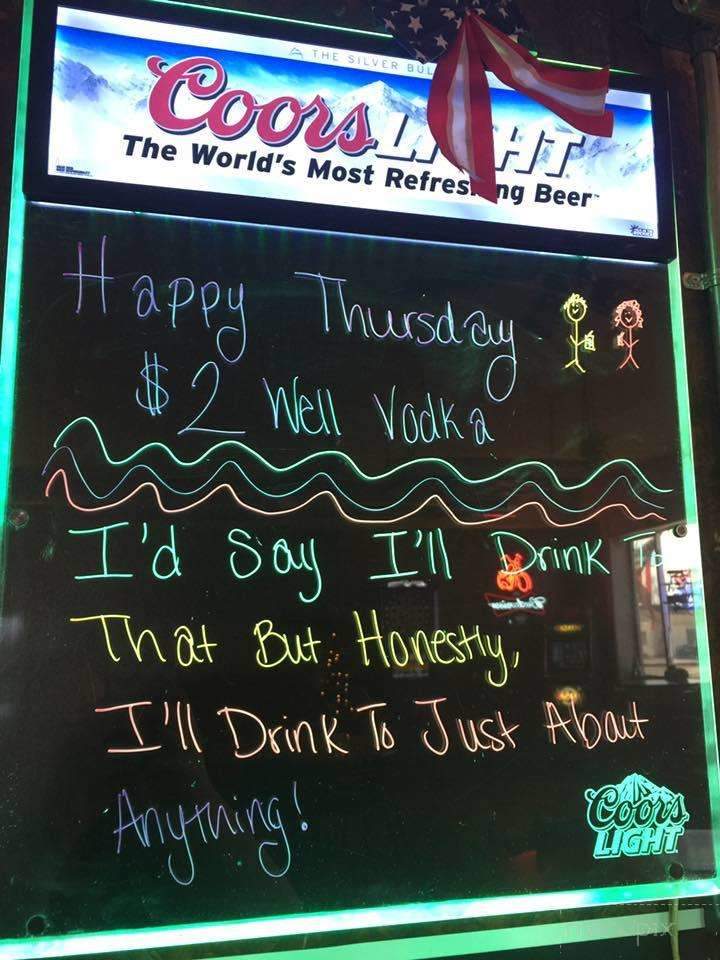 THE SILVER BUL
Coors LIGHT
The World's Most Refreshing Beer
Happy Thursday
$2 Well Vodka
I'd Say I'll Drink To
That But Honestly,
I'll Drink To Just About
Anything!
Coors
LIGHT